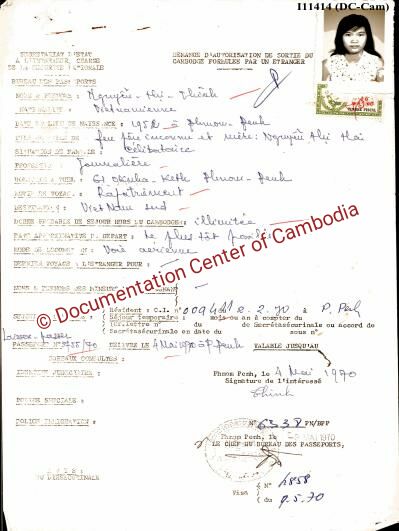 I11414 (DC-Cam)
SECRETARIAT D'ETAT
A L'INTERIEUR, CHARGE
DE LA SECURITE NATIONALE
BUREAU DES PASSEPORTS
DEMANDE D'AUTORISATION DE SORTIE DU
CAMBODGE FORMULEE PAR UN ETRANGER
NOMS & PRENOMS : Nguyên - Thi - Thinh
NATIONALITE : Vietnamienne
DATE & LIEU DE NAISSANCE : 1952 à Phnom-Penh
feu père inconnu et mère: Nguyên Thi Hai
SITUATION DE FAMILLE : Célibataire
PROFESSION : Journalière
61 Oknha-Keth Phnom-Penh
MOTIF DU VOYAGE : Rapatriement
Viêt Nam sud
DUREE PROBABLE DE SEJOUR HORS DU CAMBODGE : illimitée
DATE APPROXIMATIVE DU DEPART : Le plus tôt possible
MODE DE LOCOMOTION : Voie aérienne
DERNIERS VOYAGES A L'ETRANGER POUR :
Résident : C.I. n° à P. Penh
Séjour temporaire : mois ou an à compter du
du de Secrétaséurinale ou accord de
(Secrétaséurinale en date du sous n°
Laissez-passer
PASSEPORT N° 3458/70 DELIVRE LE 4 Mai 1970 à P. Penh VALABLE JUSQU'AU
BUREAUX CONSULTES :
IDENTITE JUDICIAIRE :
Phnom Penh, le 4 Mai 1970
Signature de l'intéressé
Thinh
POLICE SPECIALE :
POLICE IMMIGRATION :
N° 6338 PN/BPP
Phnom Penh, le MAI 1970
LE CHEF DU BUREAU DES PASSEPORTS,
AVIS
DU SECRETASEURINALE
Visa ( N° 4858
( du 9.5.70
© Documentation Center of Cambodia